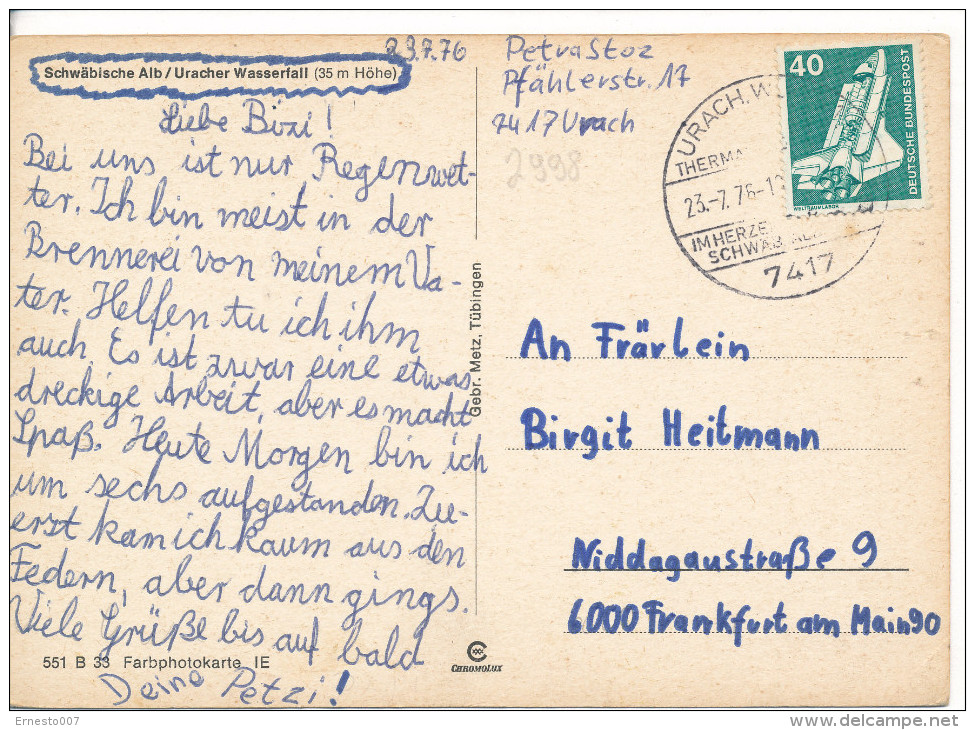 23.7.76
Schwäbische Alb / Uracher Wasserfall (35 m Höhe)
Liebe Bizi!
Bei uns ist nur Regenwet-
ter. Ich bin meist in der
Brennerei von meinem Va-
ter. Helfen tu ich ihm
auch. Es ist zwar eine etwas
dreckige Arbeit, aber es macht
Spaß. Heute Morgen bin ich
um sechs aufgestanden. Zu-
erst kam ich kaum aus den
Federn, aber dann gings.
Viele Grüße bis auf bald
Deine Petzi!
551 B 33 Farbphotokarte IE
Gebr. Metz, Tübingen
CHROMOLUX
Petra Stoz
Pfählerstr. 17
7417 Urach
2998
URACH, W
THERMA
23.-7.76-1
IM HERZE
SCHWÄB. AL
7417
40
DEUTSCHE BUNDESPOST
WELTRAUMLABOR
An Frärlein
Birgit Heitmann
Niddagaustraße 9
6000 Frankfurt am Main 90
Ernesto007
www.delcampe.net